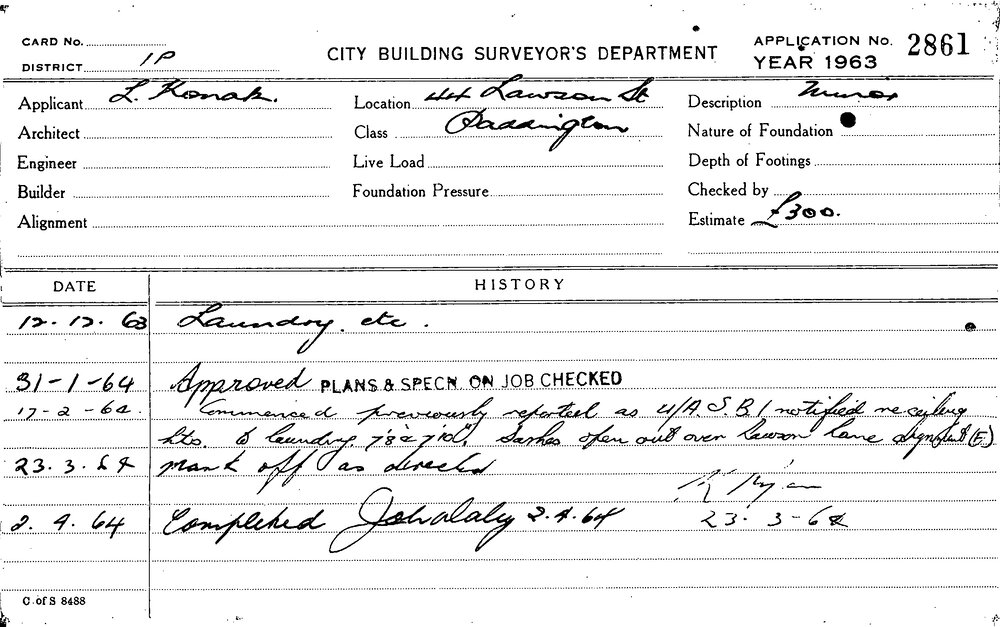 CARD No.
DISTRICT 1P
CITY BUILDING SURVEYOR'S DEPARTMENT
APPLICATION No. 2861
YEAR 1963
Applicant L. Konak.
Location 44 Lawson St
Description Minor
Architect
Class Paddington
Nature of Foundation
Engineer
Live Load
Depth of Footings
Builder
Foundation Pressure
Checked by
Alignment
Estimate £300.
DATE HISTORY
12.12.63 Laundry. etc.
31-1-64 Approved PLANS & SPECN. ON JOB CHECKED
17-2-64. Commenced previously reported as U/A S.B.1 notified re ceiling
hts. to laundry. 7'8" & 7'10". Sashes open out over Lawson Lane alignment (E)
23.3.64 mark off as directed
K Ryan
2.4.64 Completed 2.4.64 23.3-64
C of S 8488